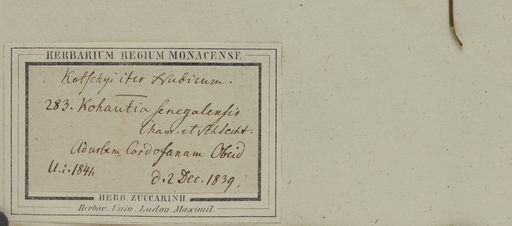 HERBARIUM REGIUM MONACENSE
Kotschyi iter Nubicum.
283. Kohautia senegalensis
Cham. et Schlecht.
Ad urbem Cordofanam Obeid
U. i. 1841. d. 2 Dec. 1839.
HERB. ZUCCARINII
Herbar. Univ. Ludov. Maximil.